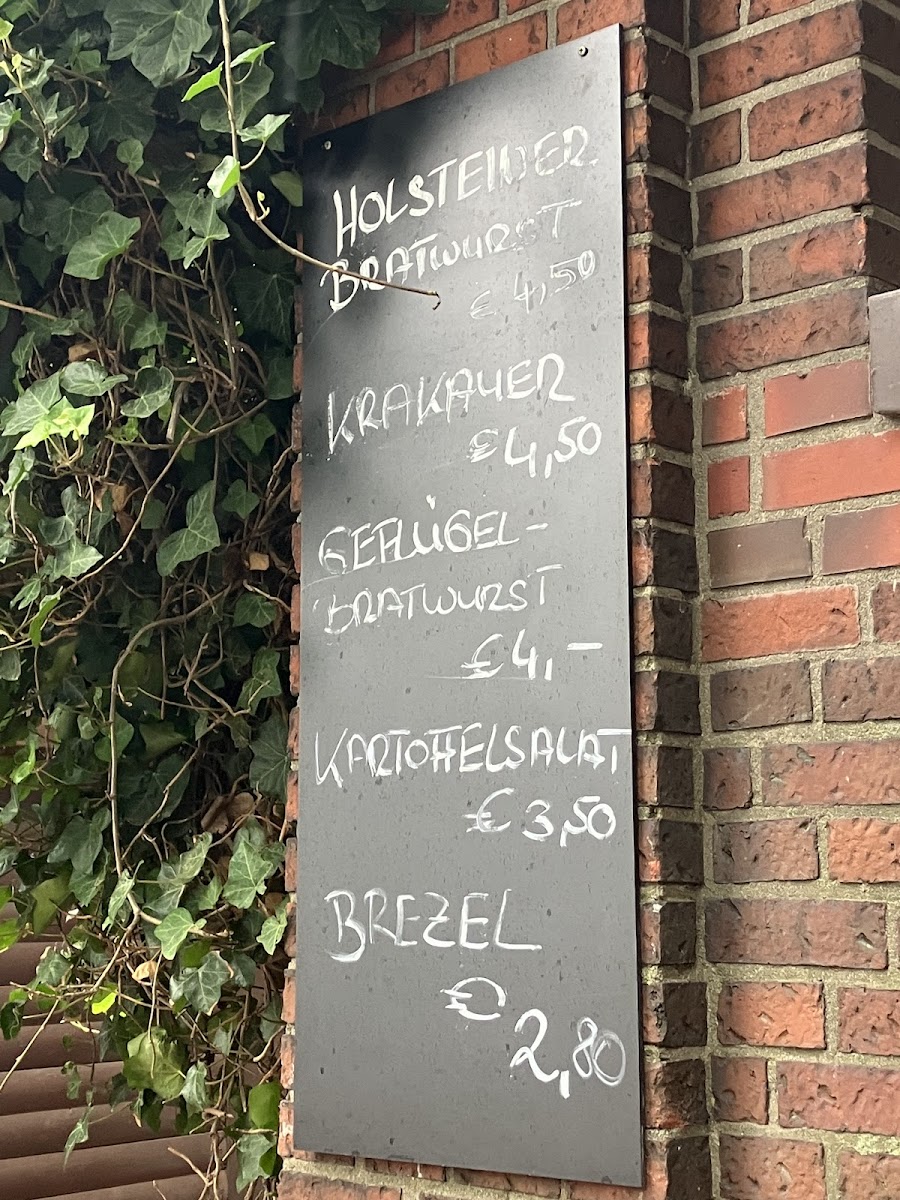 HOLSTEINER
BRATWURST
€ 4,50
KRAKAUER
€ 4,50
GEFLÜGEL-
BRATWURST
€ 4,-
KARTOFFELSALAT
€ 3,50
BREZEL
€
2,80